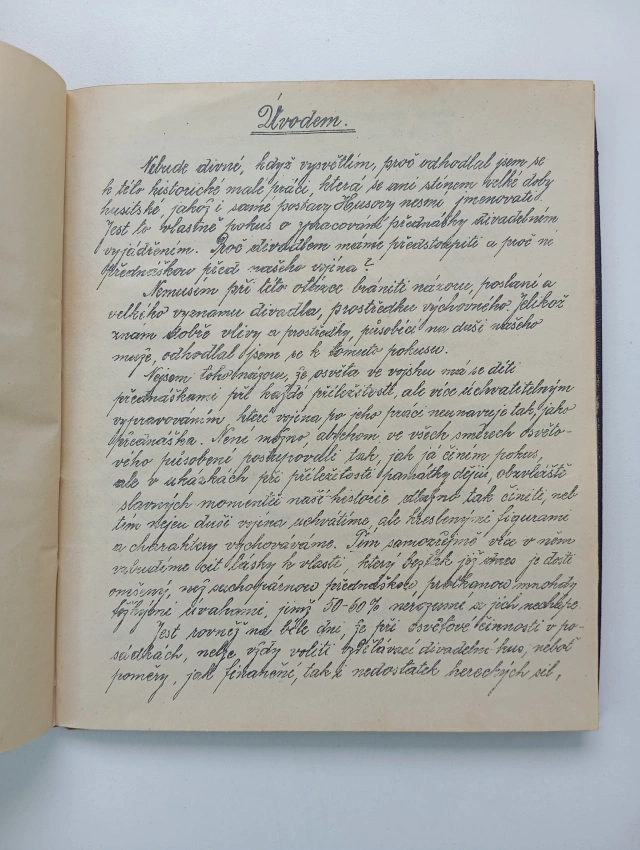 Úvodem.
Nebude divné, když vysvětlím, proč odhodlal jsem se
k této historické malé práci, která se ani stínem velké doby
husitské, jakož i samé postavy Husovy nesmí jmenovati.
Jest to vlastně pokus o zpracování přednášky divadelním
vyjádřením. Proč divadlem máme předstoupiti a proč ne
přednáškou před našeho vojína?
Nemusím při této otázce brániti názor, poslání a
velkého významu divadla, prostředku výchovného. Jelikož
znám dobře vlivy a prostředky, působící na duši našeho
muže, odhodlal jsem se k tomuto pokusu.
Nejsem toho názoru, že osvěta ve vojsku má se díti
přednáškami při každé příležitosti, ale více uchvatitelným
vypravováním, které vojína po jeho práci neunavuje tak, jako
přednáška. Není možno, abychom ve všech směrech osvěto-
vého působení postupovali tak, jak já činím pokus,
ale v ukázkách při příležitosti památky dějů, obzvláště
slavných momentů naší historie možno tak činiti, neb
tím nejen duši vojína uchvátíme, ale kreslenými figurami
a charaktery vychováváme. Tím samozřejmě více v něm
vzbudíme cit lásky k vlasti, který beztak již dnes je dosti
omšený, než suchopárnou přednáškou, protkanou mnohdy
úvahami, jimž 50-60% nerozumí a jich nechápe.
Jest rovněž na bíle dni, že při osvětové činnosti v po-
sádkách, nelze vždy voliti vzdělávací divadelní kus, neboť
poměry, jak finanční, tak i nedostatek hereckých sil,